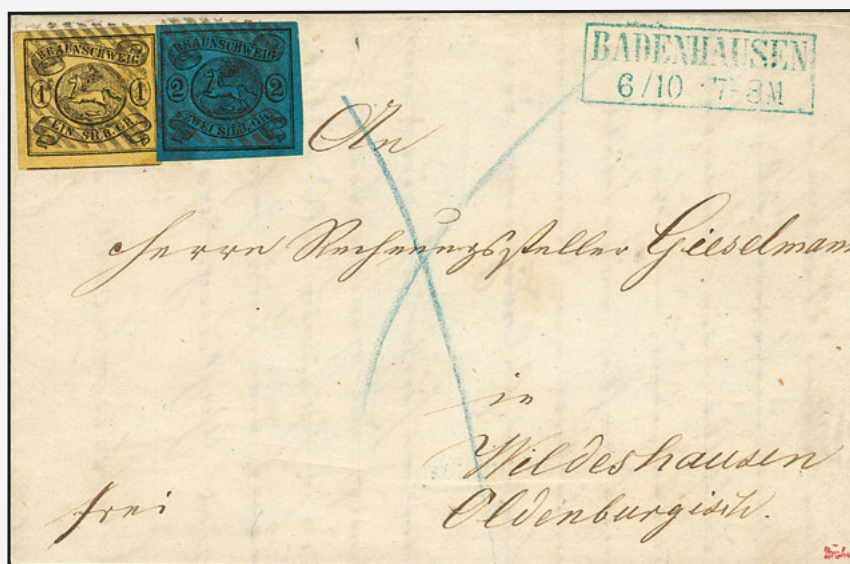 BRAUNSCHWEIG
1 1
EIN SILB. GR.
BRAUNSCHWEIG
2 2
ZWEI SILB. GR.
BADENHAUSEN
6/10 7-8M
An
Herrn Rechnungssteller Gieselmann
in
Wildeshausen
Oldenburgisch.
frei